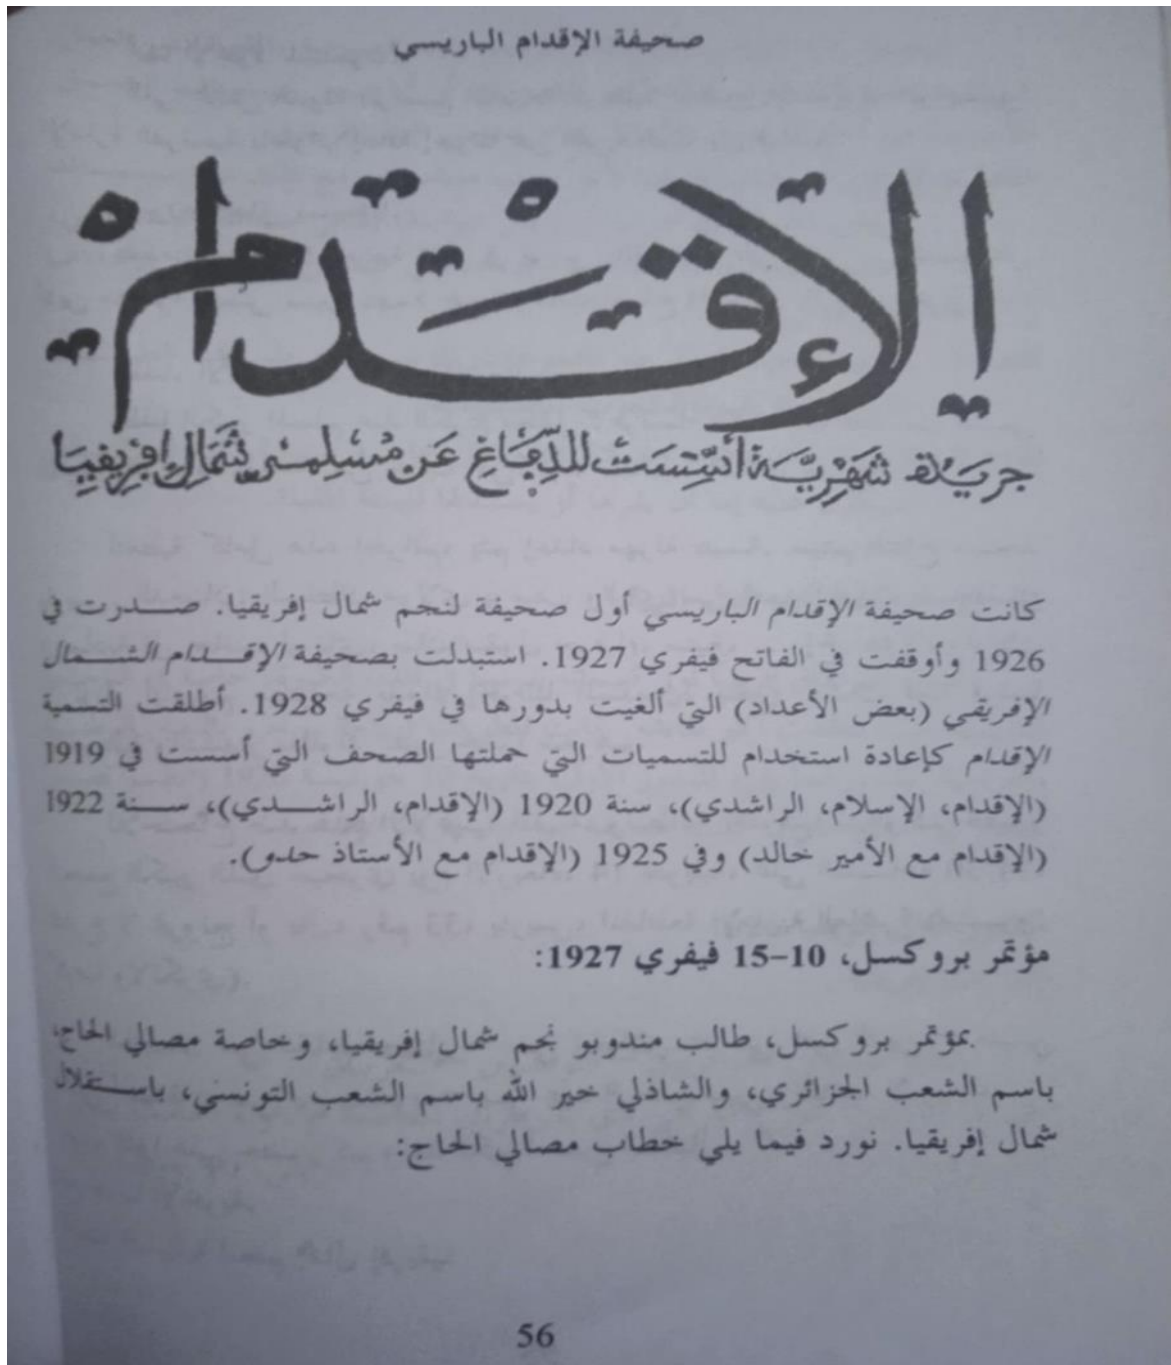 صحيفة الإقدام الباريسي
الإقدام
جريدة شهرية أسست للدفاع عن مسلمي شمال إفريقيا
كانت صحيفة الإقدام الباريسي أول صحيفة لنجم شمال إفريقيا. صدرت في
1926 وأوقفت في الفاتح فيفري 1927. استبدلت بصحيفة الإقدام الشمال
الإفريقي (بعض الأعداد) التي ألغيت بدورها في فيفري 1928. أطلقت التسمية
الإقدام كإعادة استخدام للتسميات التي حملتها الصحف التي أسست في 1919
(الإقدام، الإسلام، الراشدي)، سنة 1920 (الإقدام، الراشدي)، سنة 1922
(الإقدام مع الأمير خالد) وفي 1925 (الإقدام مع الأستاذ حدو).
مؤتمر بروكسل، 10-15 فيفري 1927:
بمؤتمر بروكسل، طالب مندوبو نجم شمال إفريقيا، وخاصة مصالي الحاج،
باسم الشعب الجزائري، والشاذلي خير الله باسم الشعب التونسي، باستقلال
شمال إفريقيا. نورد فيما يلي خطاب مصالي الحاج:
56